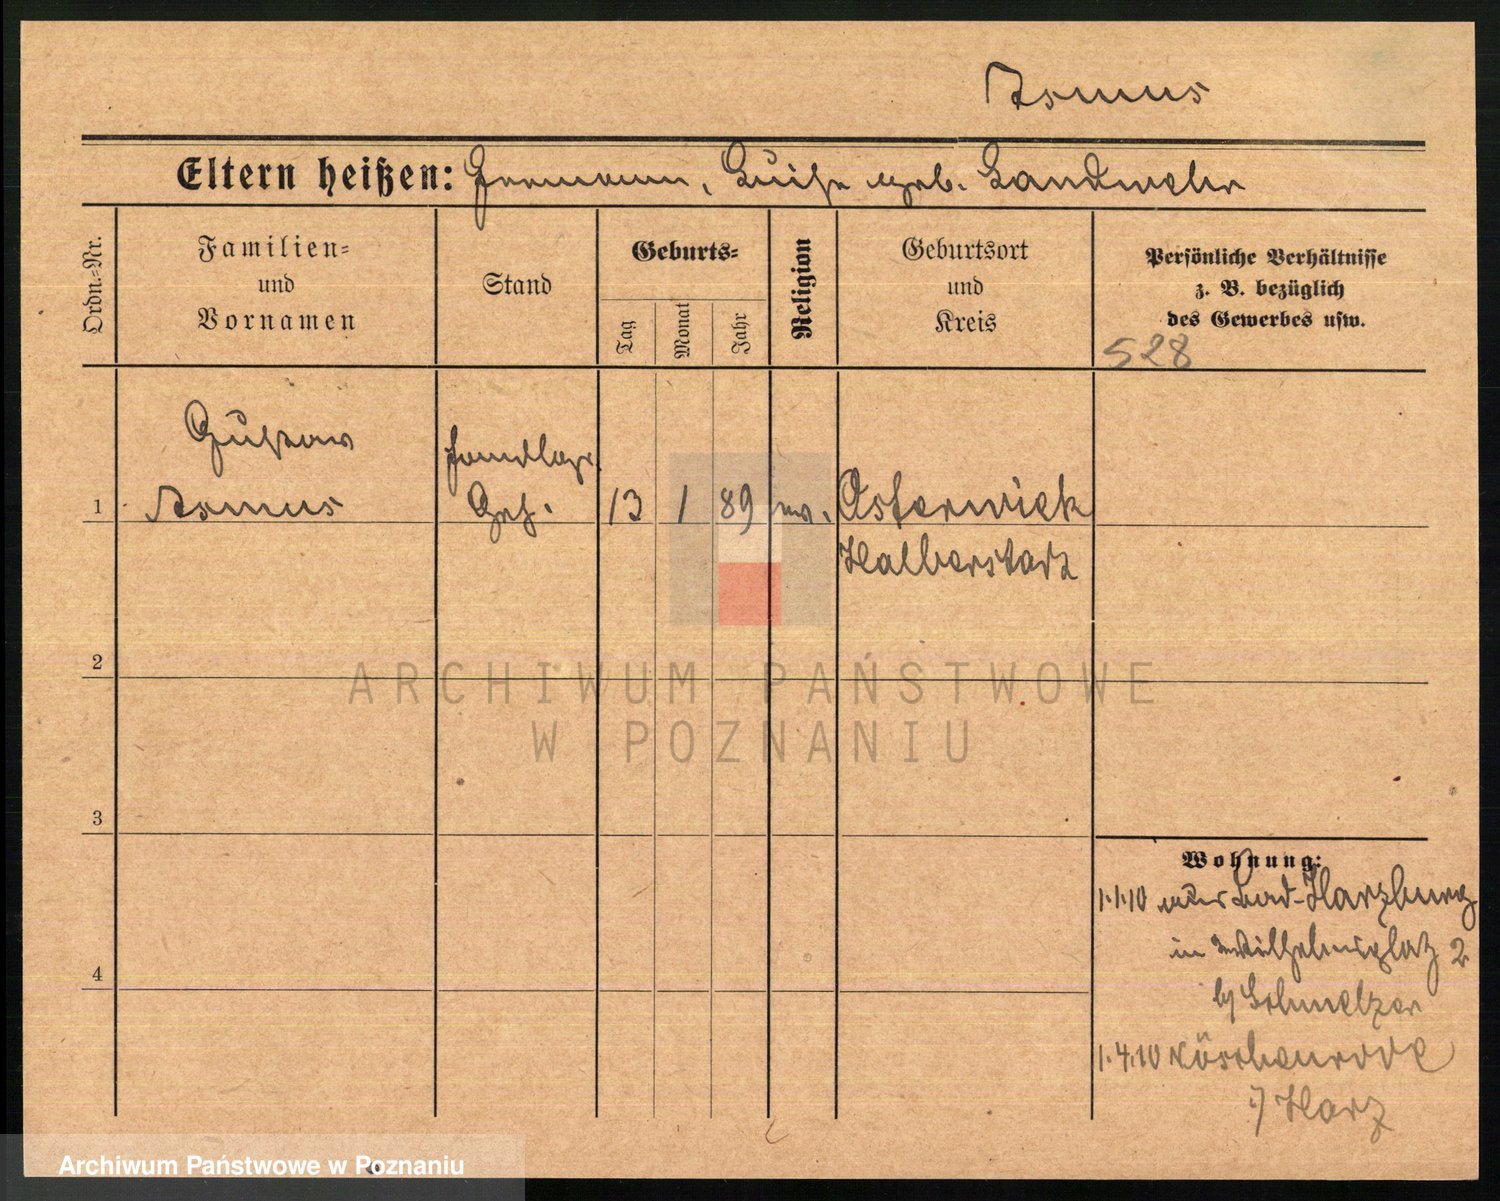 Asmus
Eltern heißen: Hermann, Luise geb. Landwehr
Ordn.=Nr.
Familien=
und
Vornamen
Stand
Geburts=
Tag
Monat
Jahr
Religion
Geburtsort
und
Kreis
Persönliche Verhältnisse
z. B. bezüglich
des Gewerbes usw.
528
1
Gustav
Asmus
Handlgs.
Geh.
13
1
89
ev.
Osterwiek
Halberstadt
2
3
4
Wohnung:
1.1.10 aus Bad-Harzburg
in Wilhelmsplatz 2
b/ Schmelzer
1.4.10 Nöschenrode
i/ Harz
ARCHIWUM PAŃSTWOWE
W POZNANIU
Archiwum Państwowe w Poznaniu